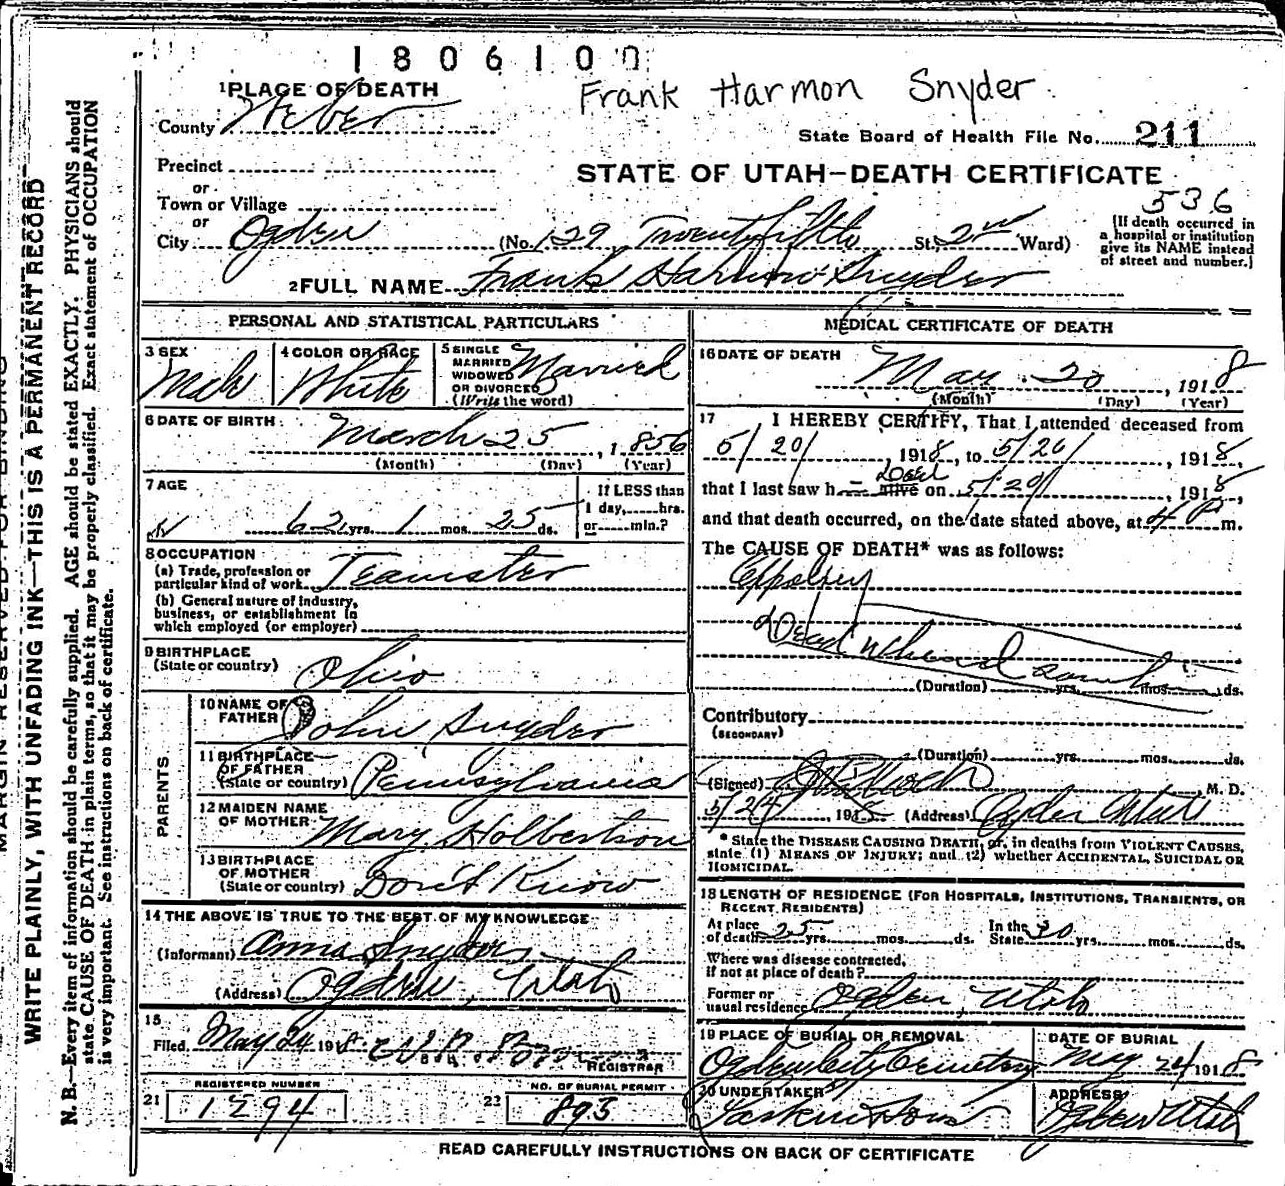 1806100
Frank Harmon Snyder
1 PLACE OF DEATH
County Weber
State Board of Health File No. 211
Precinct
or
Town or Village
or
STATE OF UTAH—DEATH CERTIFICATE
536
City Ogden (No. 129 Twentyfifth St. 2nd Ward)
(If death occurred in a hospital or institution give its NAME instead of street and number.)
2 FULL NAME Frank Harmon Snyder
PERSONAL AND STATISTICAL PARTICULARS
3 SEX Male
4 COLOR OR RACE White
5 SINGLE MARRIED WIDOWED OR DIVORCED (Write the word) Married
6 DATE OF BIRTH March 25, 1856
(Month) (Day) (Year)
7 AGE 62 yrs. 1 mos. 25 ds.
If LESS than 1 day, hrs. or min.?
8 OCCUPATION
(a) Trade, profession or particular kind of work Teamster
(b) General nature of industry, business, or establishment in which employed (or employer)
9 BIRTHPLACE
(State or country) Ohio
PARENTS
10 NAME OF FATHER John Snyder
11 BIRTHPLACE OF FATHER (State or country) Pennsylvania
12 MAIDEN NAME OF MOTHER Mary Holbertson
13 BIRTHPLACE OF MOTHER (State or country) Don't Know
14 THE ABOVE IS TRUE TO THE BEST OF MY KNOWLEDGE
(Informant) Anna Snyder
(Address) Ogden, Utah
15
Filed May 24 1918
REGISTRAR
REGISTERED NUMBER
21 1294
NO. OF BURIAL PERMIT
22 893
MEDICAL CERTIFICATE OF DEATH
16 DATE OF DEATH May 20, 1918
(Month) (Day) (Year)
17 I HEREBY CERTIFY, That I attended deceased from
5/20/, 1918, to 5/20/, 1918,
that I last saw h— alive dead on 5/20/, 1918,
and that death occurred, on the date stated above, at 4 P m.
The CAUSE OF DEATH* was as follows:
Dead when I
(Duration) yrs. mos. ds.
Contributory
(SECONDARY)
(Duration) yrs. mos. ds.
(Signed) M. D.
5/24, 1918 (Address) Ogden Utah
* State the DISEASE CAUSING DEATH, or, in deaths from VIOLENT CAUSES,
state (1) MEANS OF INJURY; and (2) whether ACCIDENTAL, SUICIDAL OR
HOMICIDAL.
18 LENGTH OF RESIDENCE (FOR HOSPITALS, INSTITUTIONS, TRANSIENTS, OR
RECENT RESIDENTS)
At place of death 25 yrs. mos. ds. In the State 30 yrs. mos. ds.
Where was disease contracted,
if not at place of death?
Former or usual residence Ogden, Utah
19 PLACE OF BURIAL OR REMOVAL
Ogden City Cemetery
DATE OF BURIAL
May 24 1918
20 UNDERTAKER
Larkin & Sons
ADDRESS
Ogden Utah
READ CAREFULLY INSTRUCTIONS ON BACK OF CERTIFICATE
MARGIN RESERVED FOR BINDING
WRITE PLAINLY, WITH UNFADING INK—THIS IS A PERMANENT RECORD
N. B.—Every item of information should be carefully supplied. AGE should be stated EXACTLY. PHYSICIANS should
state CAUSE OF DEATH in plain terms, so that it may be properly classified. Exact statement of OCCUPATION
is very important. See instructions on back of certificate.